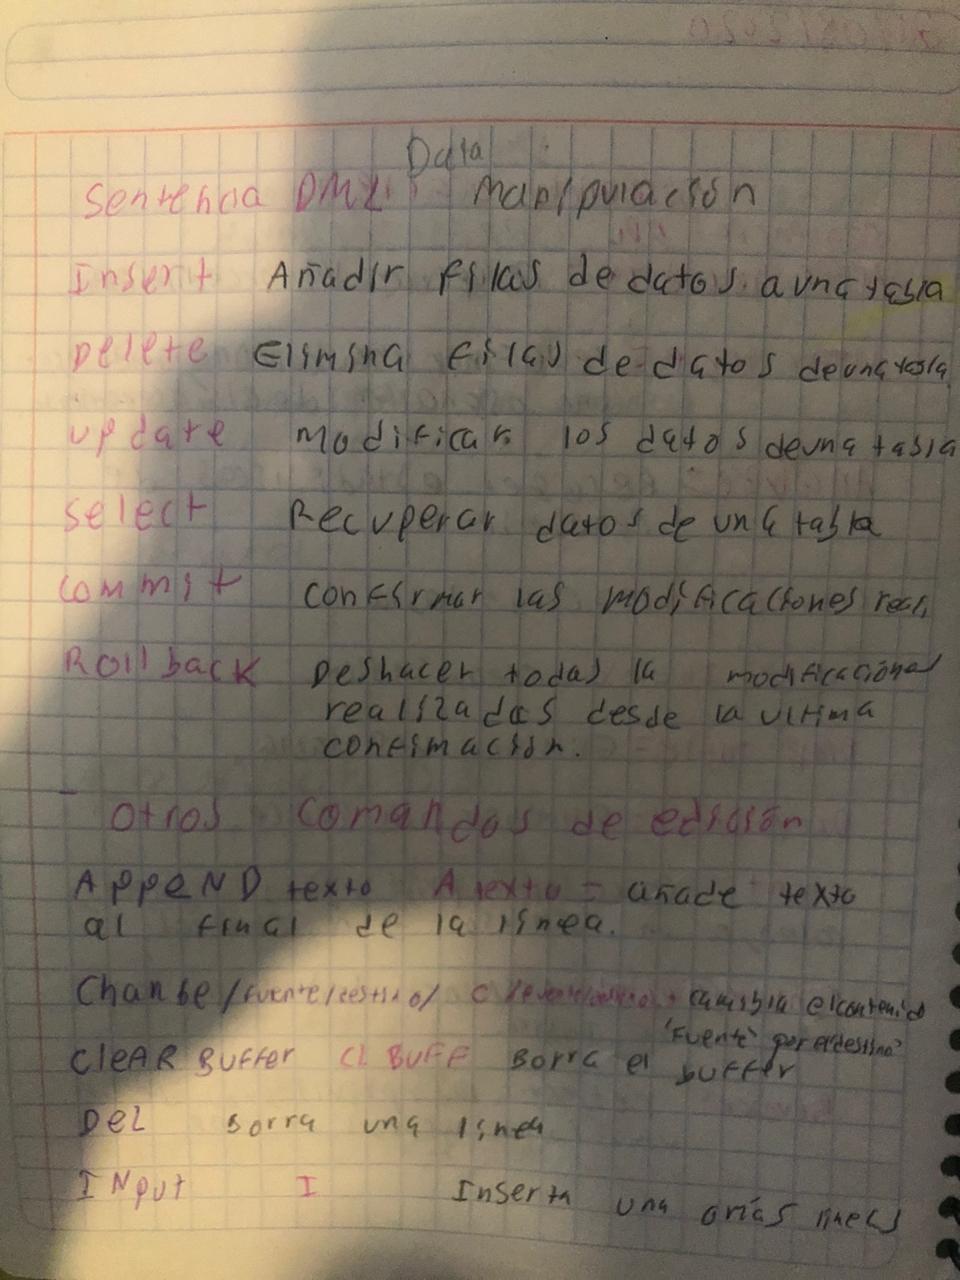 Data
Sentencia DML: Manipulación
Insert Añadir filas de datos a una tabla
Delete Elimina filas de datos de una tabla
update modificar los datos de una tabla
select Recuperar datos de una tabla
commit confirmar las modificaciones
Rollback Deshacer todas la modificaciones
realizadas desde la ultima
confimación.
Otros Comandos de edición
APPEND texto A texto = añade texto
al final de la línea.
Change /fuente/destino/ cambia el contenido
'fuente' por el 'destino'
CleAR BuFFer CL BUFF Borra el buffer
Del Borra una línea
INput I Inserta una o más líneas